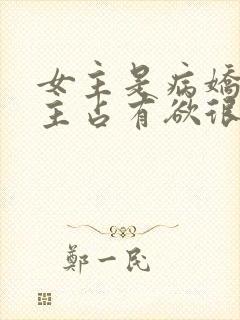 女主是病嬌
主占有欲很
鄭一民